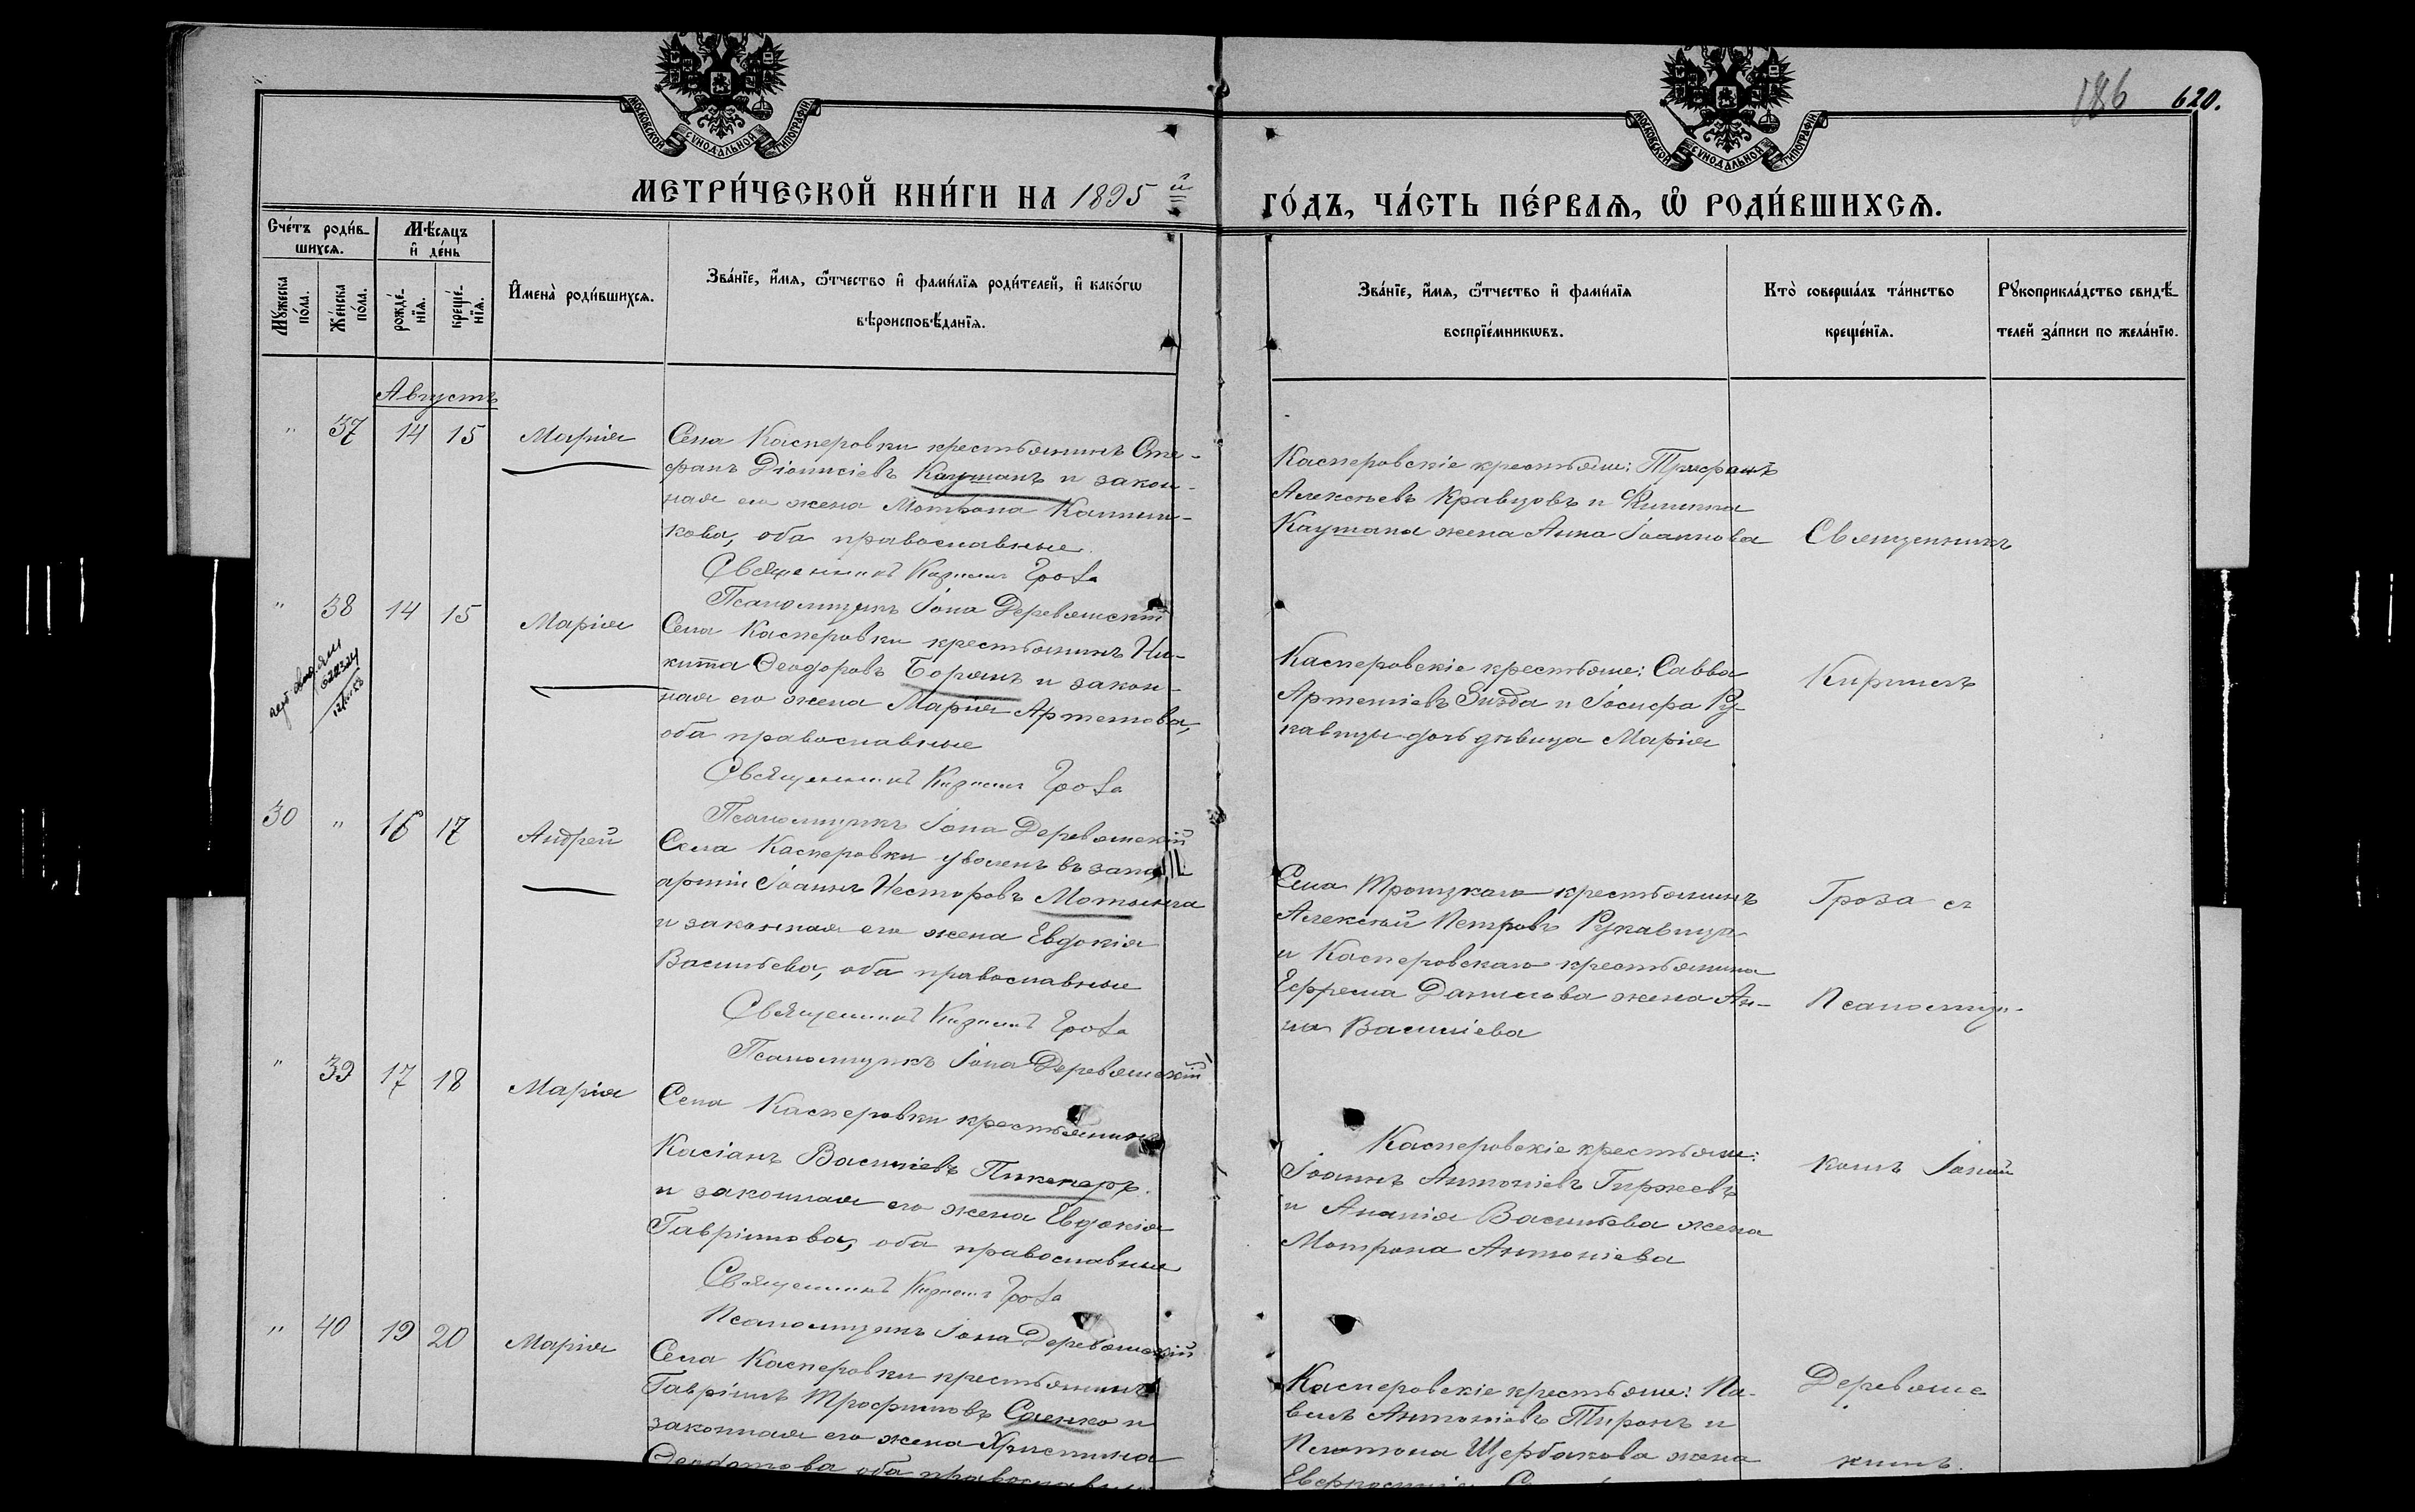 МОСКОВСКОЙ СѴНОДАЛЬНОЙ ТИПОГРАФІИ
МОСКОВСКОЙ СѴНОДАЛЬНОЙ ТИПОГРАФІИ
186 620.
МЕТРИ́ЧЕСКОЙ КНИ́ГИ НА 1895 й
ГО́ДЪ, ЧА́СТЬ ПЕ́РВАЯ, Ѡ҆ РОДИ́ВШИХСЯ.
Сче́тъ роди́в-
шихся.
Мѣ́сяцъ
и҆ де́нь
Мꙋ́жеска
по́ла.
Же́нска
по́ла.
рожде́-
нїя.
креще́-
нїя.
И҆мена̀ роди́вшихся.
Зва́нїе, и҆́мя, ѻ҆́тчество и҆ фами́лїя роди́телей, и҆ како́гѡ
вѣроисповѣ́данїя.
Зва́нїе, и҆́мя, ѻ҆́тчество и҆ фами́лїя
воспрїе́мникѡвъ.
Кто̀ соверша́лъ та́инство
креще́нїя.
Рꙋкоприкла́дство свидѣ́-
телей за́писи по жела́нїю.
Августъ
" 37 14 15 Марія
Села Касперовки крестьянинъ Сте-
фанъ Діонисіевъ Каушанъ и закон-
ная его жена Мотрона
кова, оба православные
Священникъ Кириллъ Гроза
Псаломщикъ Іона Деревянскій
Касперовскіе крестьяне: Трифанъ
Алексѣевъ Кравцовъ и Филиппа
Каушана жена Анна Іоаннова
Священникъ
" 38 14 15 Марія
Села Касперовки крестьянинъ Ни-
кита Ѳеодоровъ Борянъ и закон-
ная его жена Марія Артемова,
оба православные
Священникъ Кириллъ Гроза
Псаломщикъ Іона Деревянскій
Касперовскіе крестьяне: Савва
Артеміевъ Гнѣда и Іосифа Ру-
кавицы дочь дѣвица Марія
Кириллъ
30 " 16 17 Андрей
Села Касперовки уволенъ въ запа
арміи Іоаннъ Несторовъ Мотынга
и законная его жена Евдокія
Васильева, оба православные
Священникъ Кириллъ Гроза
Псаломщикъ Іона Деревянскій
Села Троицкаго крестьянинъ
Алексѣй Петровъ Рукавица
и Касперовскаго крестьянина
Ефрема Данилова жена Ан-
на Василіева
Гроза съ
Псаломщи-
" 39 17 18 Марія
Села Касперовки крестьянинъ
Касіанъ Василіевъ Пикенеръ
и законная его жена Евдокія
Гавріилова, оба православные
Священникъ Кириллъ Гроза
Псаломщикъ Іона Деревянскій
Касперовскіе крестьяне:
Іоаннъ Антоніевъ Гиржевъ
и Ананія Васильева жена
Мотрона Антоніева
комъ Іоной
" 40 19 20 Марія
Села Касперовки крестьянинъ
Гавріилъ Трофимовъ Саенко и
законная его жена Христина
Ѳеодотова оба православные
Касперовскіе крестьяне: Па-
велъ Антоніевъ Тиронъ и
Платона Щербакова жена
Евфросинія
Деревянс
кимъ.